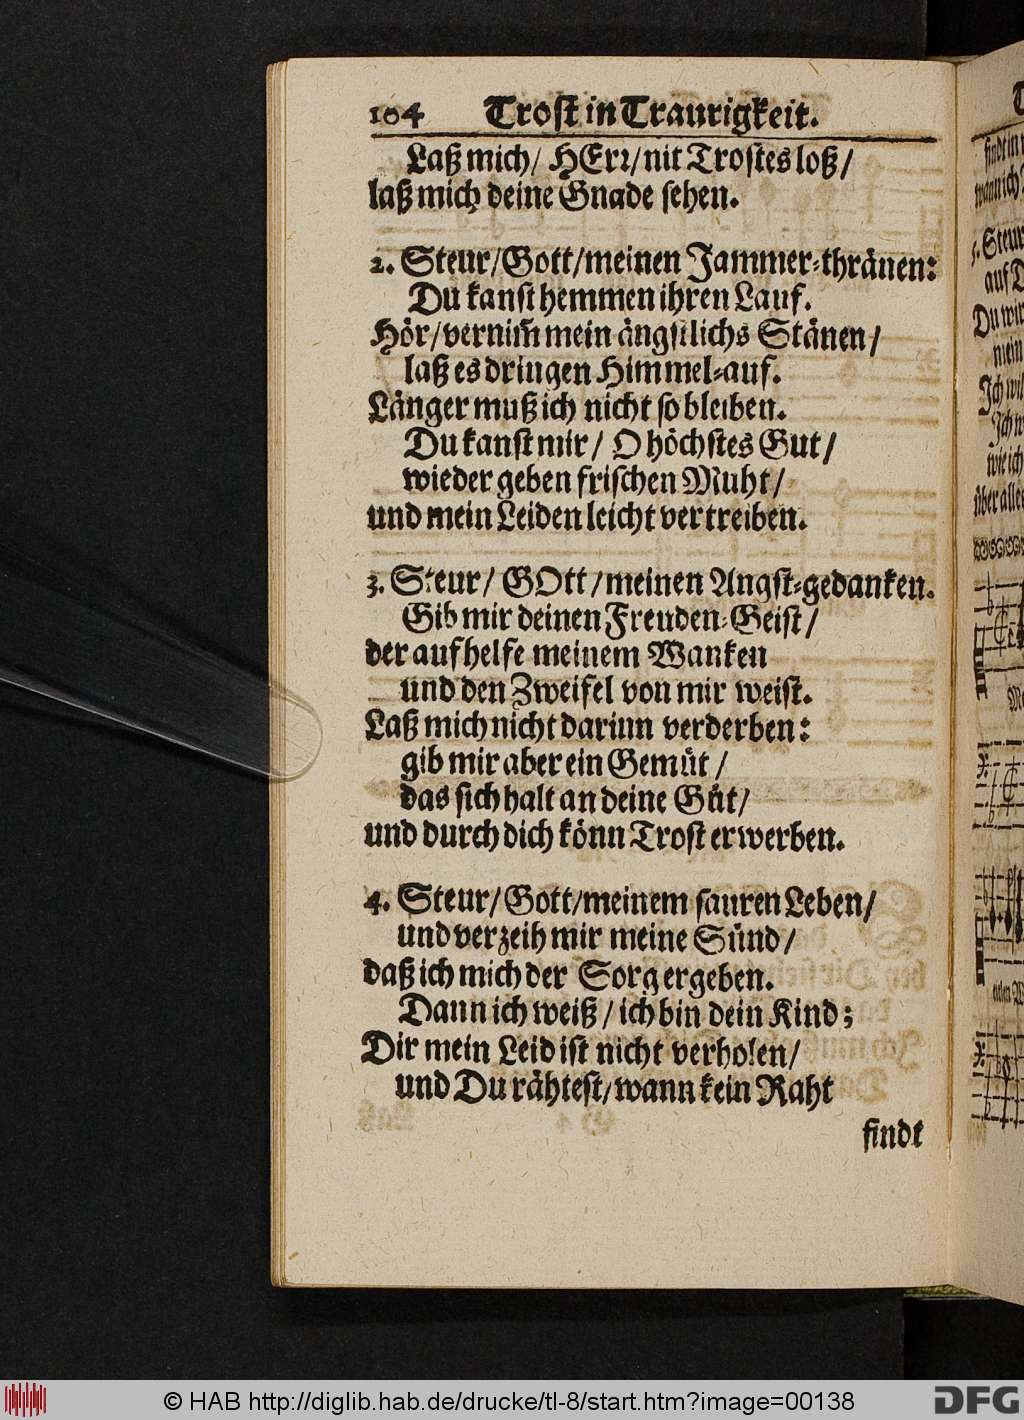 104 Trost in Traurigkeit.
Laß mich / HErr / nit Trostes loß /
laß mich deine Gnade sehen.
2. Steur / Gott / meinen Jammer-thränen:
Du kanst hemmen ihren Lauf.
Hör / vernim̃ mein ängstlichs Stänen /
laß es dringen Himmel-auf.
Länger muß ich nicht so bleiben.
Du kanst mir / O höchstes Gut /
wieder geben frischen Muht /
und mein Leiden leicht vertreiben.
3. Steur / GOtt / meinen Angst-gedanken.
Gib mir deinen Freuden-Geist /
der aufhelfe meinem Wanken
und den Zweifel von mir weist.
Laß mich nicht darinn verderben:
gib mir aber ein Gemüt /
das sich halt an deine Güt /
und durch dich könn Trost erwerben.
4. Steur / Gott / meinem sauren Leben /
und verzeih mir meine Sünd /
daß ich mich der Sorg ergeben.
Dann ich weiß / ich bin dein Kind;
Dir mein Leid ist nicht verholen /
und Du rähtest / wann kein Raht
findt
© HAB http://diglib.hab.de/drucke/tl-8/start.htm?image=00138
DFG